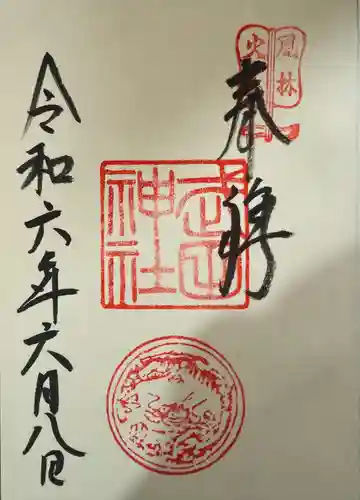 風林
火山
奉拝
武田
神社
令和六年六月八日